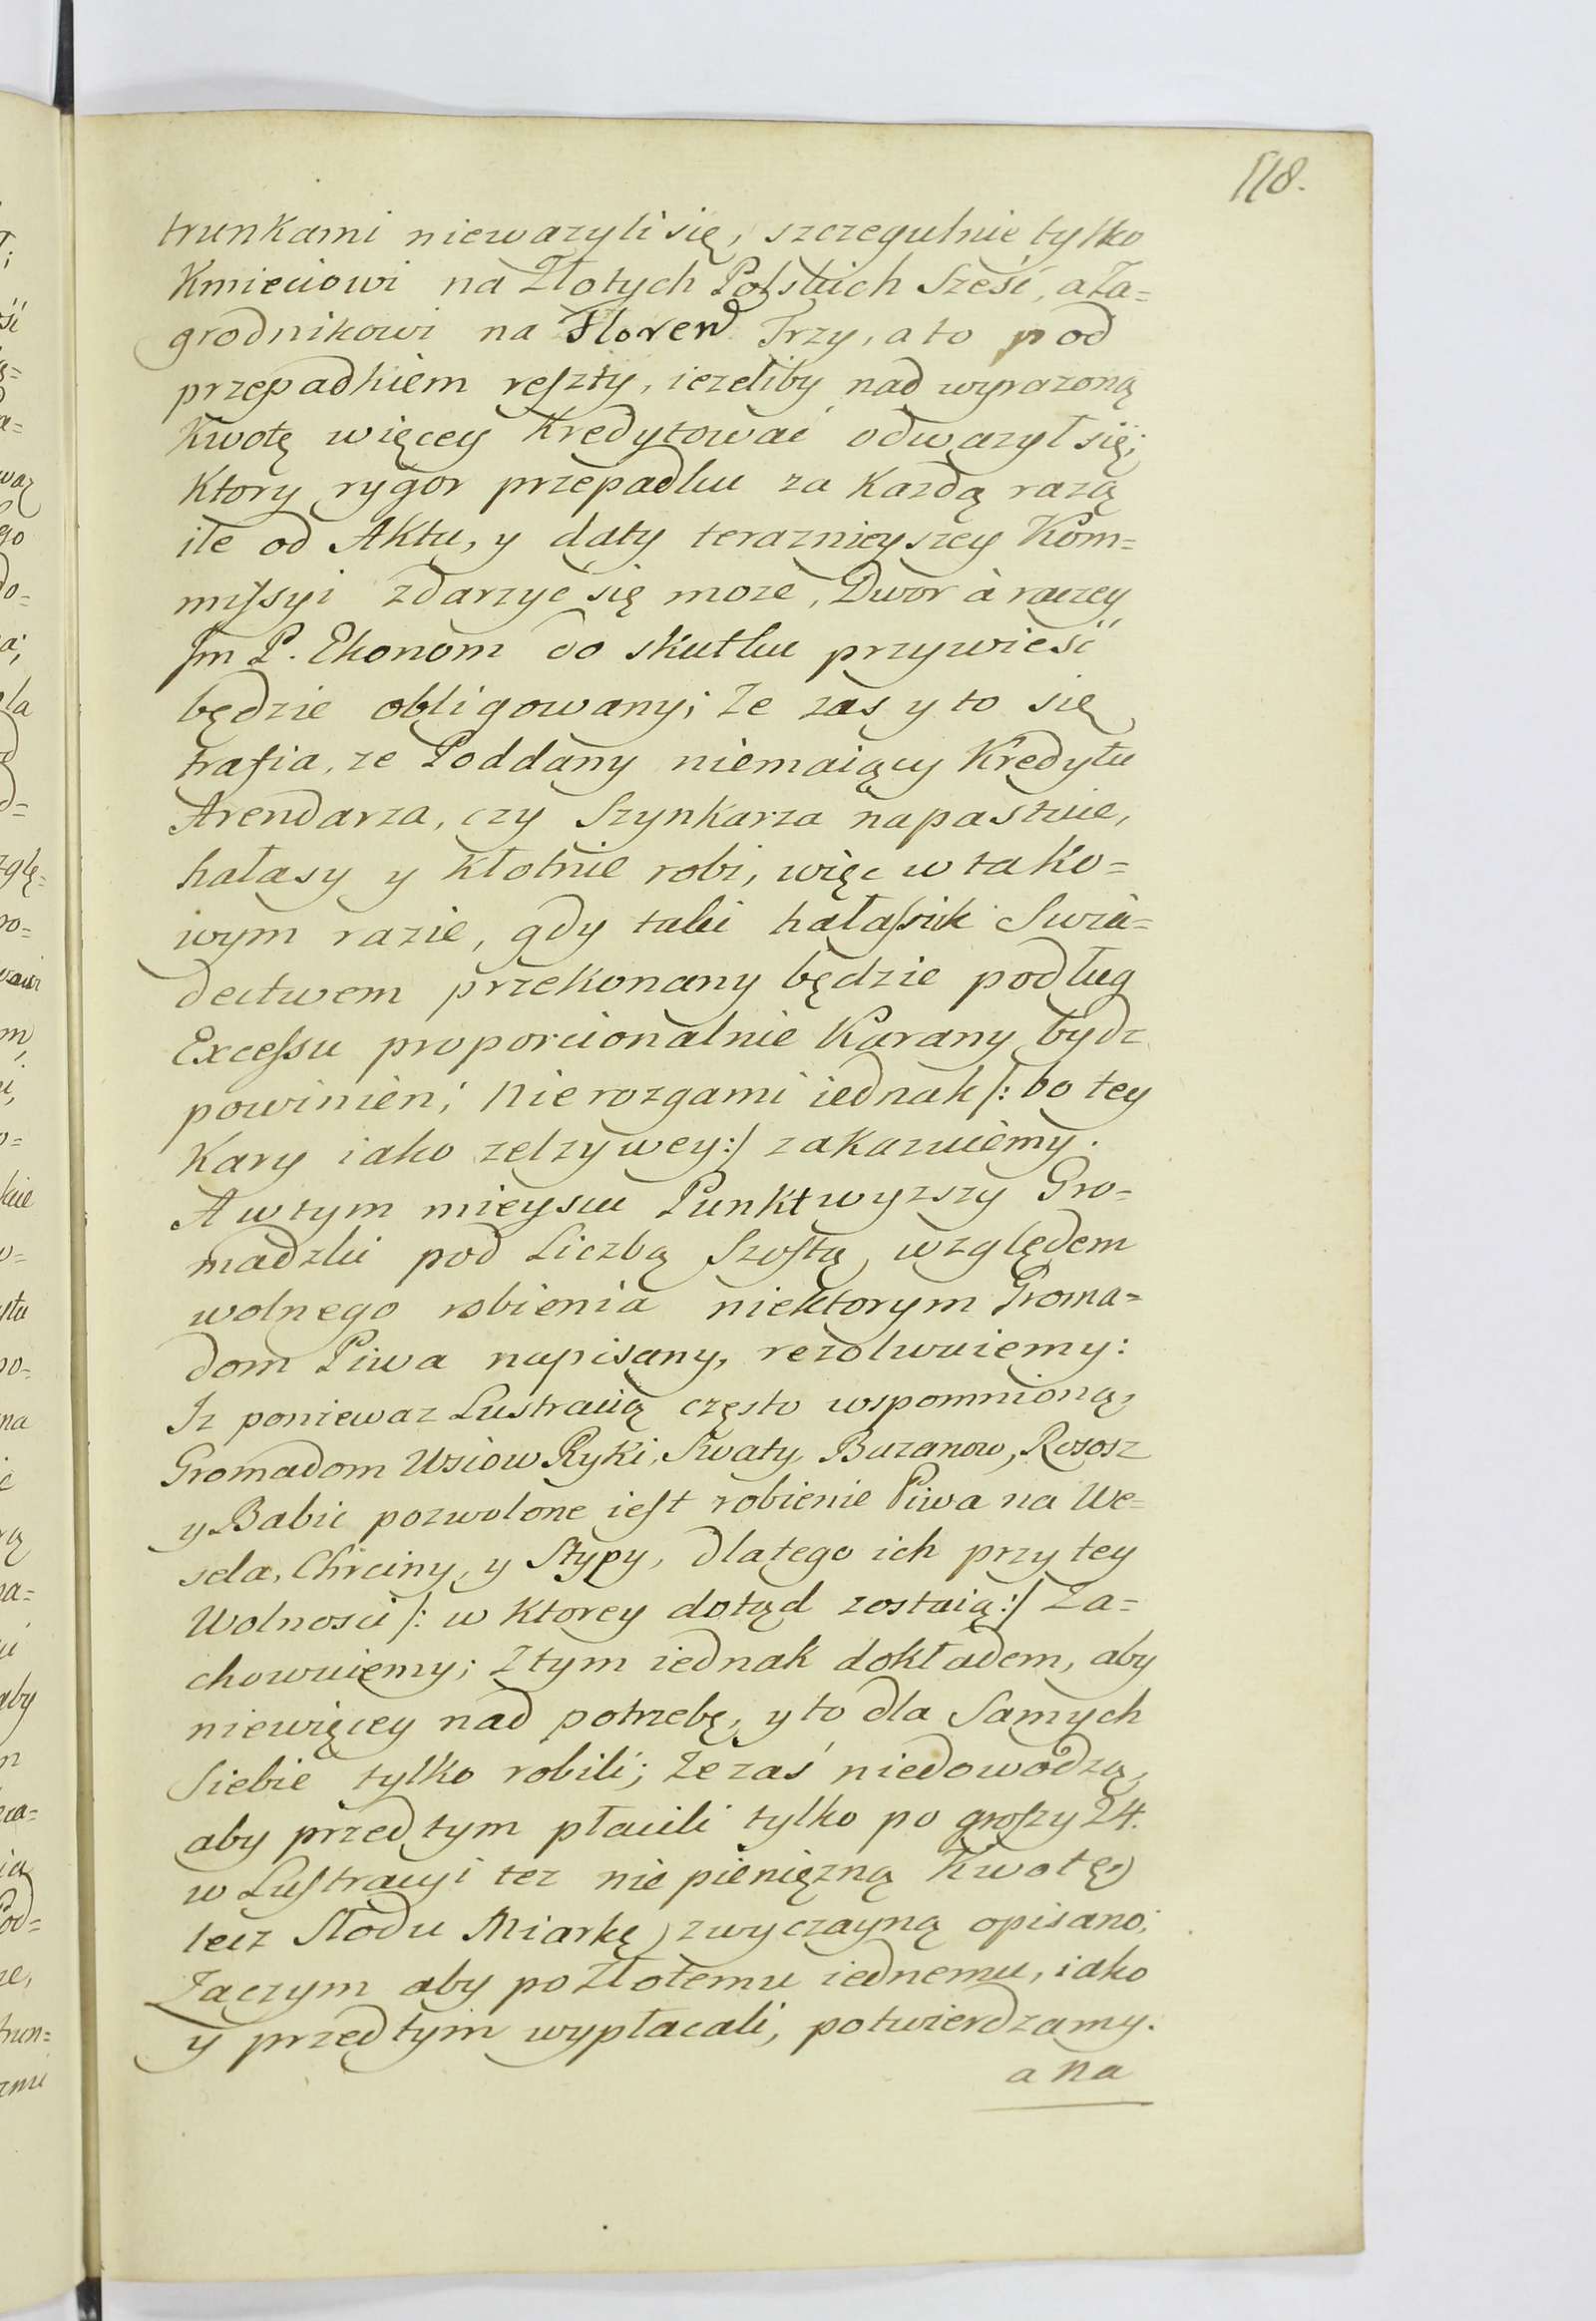 118.
trunkami niewazyli się, szczegulnie tylko
Kmieciowi na Złotych Polskich Sześć, a Za=
grodnikowi na Floren Trzy, a to pod
przepadkiem reszty, iezeliby nad wyrazoną
Kwotę więcey Kredytować odwazył się;
Ktory rygor przepadku za Kazdą razą
ile od Aktu, y daty teraznieyszey Kom=
missyi zdarzyć się moze, Dwor à raczey
Jm P. Ekonom do skutku przywieść
będzie obligowany; Ze zas y to się
trafia, ze Poddany niemaiący Kredytu
Arendarza, czy Szynkarza napastuie,
hałasy y Kłotnie robi, więc w tako=
wym razie, gdy taki hałassik Swia=
dectwem przekonany będzie podług
Excessu proporcionalnie Karany bydz
powinien; Nie rozgami iednak /: bo tey
Kary iako zelzywey :/ zakazuiemy.
A w tym mieyscu Punkt wyzszy Gro=
madzki pod Liczbą Szostą, względem
wolnego robienia niektorym Groma=
dom Piwa napisany, rezolwuiemy:
Iz poniewaz Lustracią często wspomnioną,
Gromadom Usiow Ryki, Swaty, Bazanow, Rososz
y Babic pozwolone iest robienie Piwa na We=
sela, Chrciny, y Stypy, dlatego ich przy tey
Wolnosci /: w Ktorey dotąd zostaią :/ Za=
chowuiemy; Z tym iednak dokładem, aby
niewięcey nad potrzebę, y to dla Samych
Siebie tylko robili; Ze zaś niedowodzą,
aby przed tym płacili tylko po groszy 24.
w Lustracyi tez nie pienięzną Kwotę,
lecz Słodu Miarkę zwyczayną opisano;
Zaczym aby po Złotemu iednemu, iako
y przed tym wypłacali, potwierdzamy.
a na